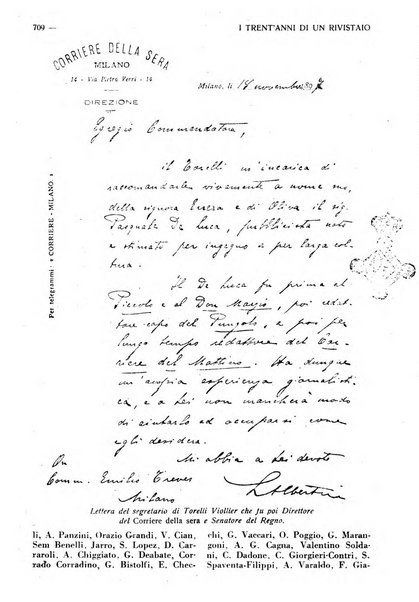 709 —
I TRENT'ANNI DI UN RIVISTAIO
CORRIERE DELLA SERA
MILANO
14 - Via Pietro Verri - 14
DIREZIONE
Per telegrammi: « CORRIERE - MILANO. »
Milano, li 14 novembre 1897
Egregio Commendatore,
il Torelli m'incarica di
raccomandarle vivamente a nome suo,
della signora Evera e di Oliva il sig.
Pasquale De Luca, pubblicista noto
e stimato per ingegno e per larga col-
tura.
Il De Luca fu prima al
Piccolo e al Don Marzio, poi redat-
tore capo del Pungolo, e poi per
lungo tempo redattore del Cor-
riere del Mattino. Ha dunque
un'ampia esperienza giornalisti-
ca, e a lei non mancherà modo
di aiutarlo ed occuparsi come
egli desidera.
Mi abbia a lei devoto
LAlbertini
On
Comm. Emilio Treves
Milano
Lettera del segretario di Torelli Viollier che fu poi Direttore
del Corriere della sera e Senatore del Regno.
li, A. Panzini, Orazio Grandi, V. Cian,
Sem Benelli, Jarro, S. Lopez, D. Car-
raroli, A. Chiggiato, G. Deabate, Cor-
rado Corradino, G. Bistolfi, E. Chec-
chi, G. Vaccari, O. Poggio, G. Maran-
goni, A. G. Cagna, Valentino Solda-
ni, C. Dadone, C. Giorgieri-Contri, S.
Spaventa-Filippi, A. Varaldo, F. Gia-